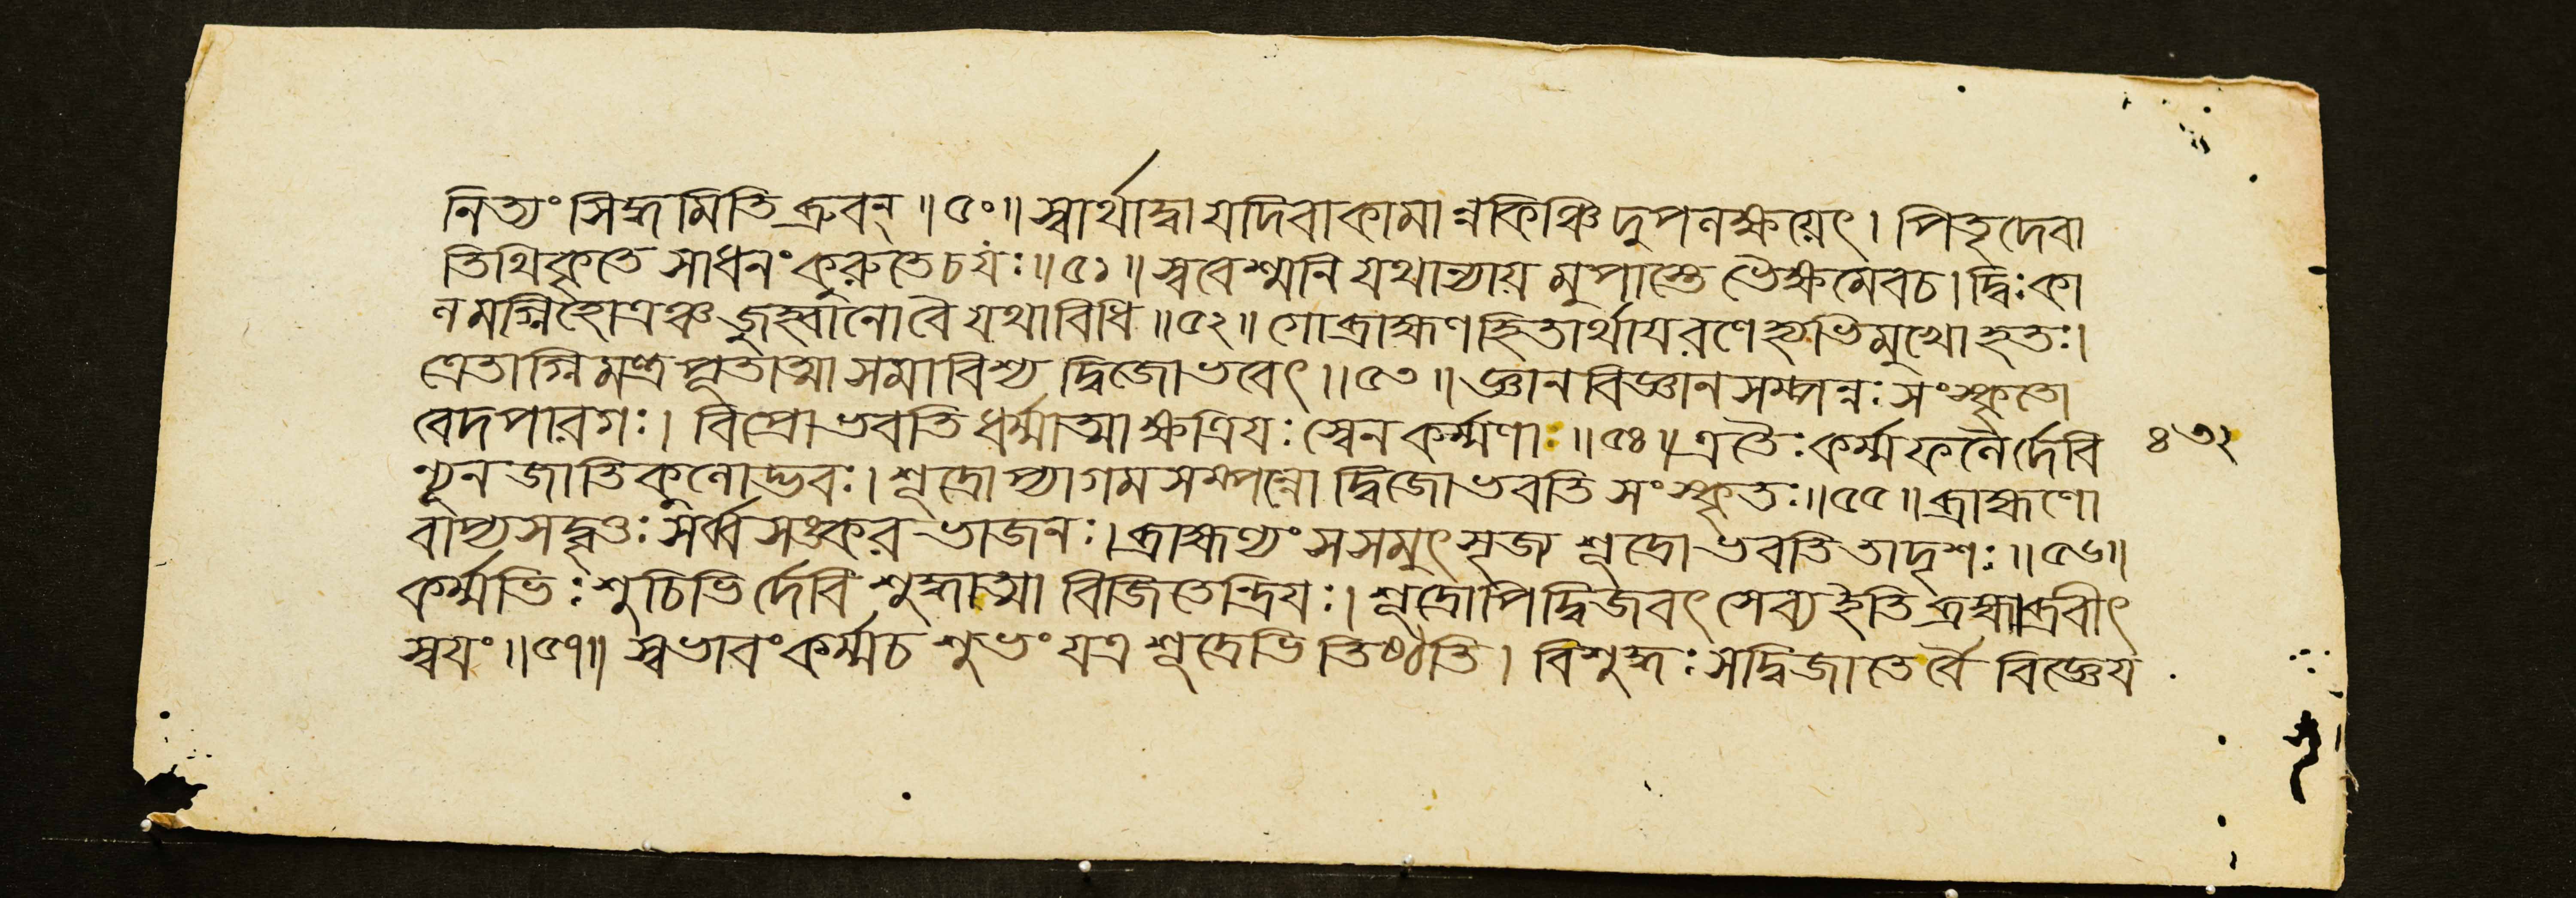 নিত্যং সিদ্ধমিতি ব্রুবন্ ॥৫০॥ স্বার্থাদ্বা যদিবাকামান্নকিঞ্চিদুপলক্ষয়েৎ। পিতৃদেবা
তিথিকৃতে সাধনংকুরুতেচযঃ॥৫১॥ স্ববেশ্মনি যথান্যায়মুপাস্তে ভৈক্ষমেবচ। দ্বিঃকা
লমগ্নিহোত্রঞ্চজুহ্বানোবৈযথাবিধি॥৫২॥ গোব্রাহ্মণহিতার্থায়রণেহ্যভিমুখোহতঃ।
ত্রেতাগ্নিমন্ত্রপূতাত্মাসমাবিশ্য দ্বিজোভবেৎ॥৫৩॥ জ্ঞানবিজ্ঞানসম্পন্নঃসংস্কৃতো
বেদপারগঃ। বিপ্রোভবতিধর্ম্মাত্মাক্ষত্রিয়ঃস্বেনকর্ম্মণাঃ॥৫৪॥এতৈঃকর্ম্মফলৈর্দেবি ৪৩২
ণ্যূনজাতিকুলোদ্ভবঃ। শূদ্রোপ্যাগমসম্পন্নো দ্বিজোভবতি সংস্কৃতঃ॥৫৫॥ব্রাহ্মণো
বাপ্যসদ্বৃত্তঃসর্ব্বসঙ্করভোজনঃ।ব্রাহ্মণ্যংসসমুৎসৃজ শূদ্রোভবতিতাদৃশঃ॥৫৬॥
কর্ম্মভিঃশুচিভির্দেবিশুদ্ধাত্মা বিজিতেন্দ্রিয়ঃ। শূদ্রোপিদ্বিজবৎসেব্যইতিব্রহ্মাব্রবীৎ
স্বয়ং॥৫৭॥ স্বভাবংকর্ম্মচশুভংযত্রশূদ্রেভিতিষ্ঠতি। বিশুদ্ধঃসদ্বিজাতের্বৈ বিজ্ঞেয়